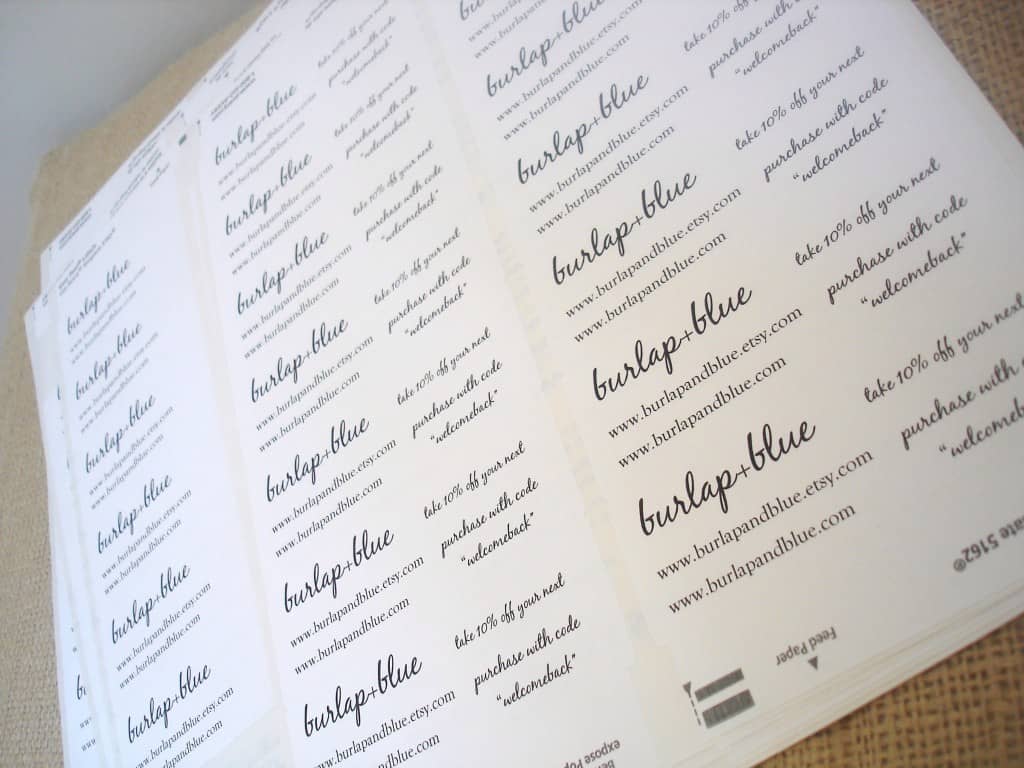 burlap+blue
www.burlapandblue.etsy.com
www.burlapandblue.com
burlap+blue
www.burlapandblue.etsy.com
www.burlapandblue.com
burlap+blue
www.burlapandblue.etsy.com
www.burlapandblue.com
burlap+blue
www.burlapandblue.etsy.com
www.burlapandblue.com
burlap+blue
www.burlapandblue.etsy.com
www.burlapandblue.com
burlap+blue
www.burlapandblue.etsy.com
www.burlapandblue.com
take 10% off your next
purchase with code
"welcomeback"
burlap+blue
www.burlapandblue.etsy.com
www.burlapandblue.com
take 10% off your next
purchase with code
"welcomeback"
burlap+blue
www.burlapandblue.etsy.com
www.burlapandblue.com
take 10% off your next
purchase with code
"welcomeback"
burlap+blue
www.burlapandblue.etsy.com
www.burlapandblue.com
take 10% off your next
purchase with code
"welcomeback"
burlap+blue
www.burlapandblue.etsy.com
www.burlapandblue.com
take 10% off your next
purchase with code
"welcomeback"
burlap+blue
www.burlapandblue.etsy.com
www.burlapandblue.com
take 10% off your next
purchase with code
"welcomeback"
burlap+blue
www.burlapandblue.etsy.com
www.burlapandblue.com
take 10% off your next
purchase with code
"welcomeback"
burlap+blue
www.burlapandblue.etsy.com
www.burlapandblue.com
burlap+blue
www.burlapandblue.etsy.com
www.burlapandblue.com
take 10% off your next
purchase with code
"welcomeback"
burlap+blue
www.burlapandblue.etsy.com
www.burlapandblue.com
take 10% off your next
purchase with code
"welcomeback"
burlap+blue
www.burlapandblue.etsy.com
www.burlapandblue.com
take 10% off your next
purchase with code
"welcomeback"
burlap+blue
www.burlapandblue.etsy.com
www.burlapandblue.com
take 10% off your next
purchase with
"welcomeb
burlap+blue
www.burlapandblue.etsy.com
www.burlapandblue.com
5162®
Feed Paper
expose